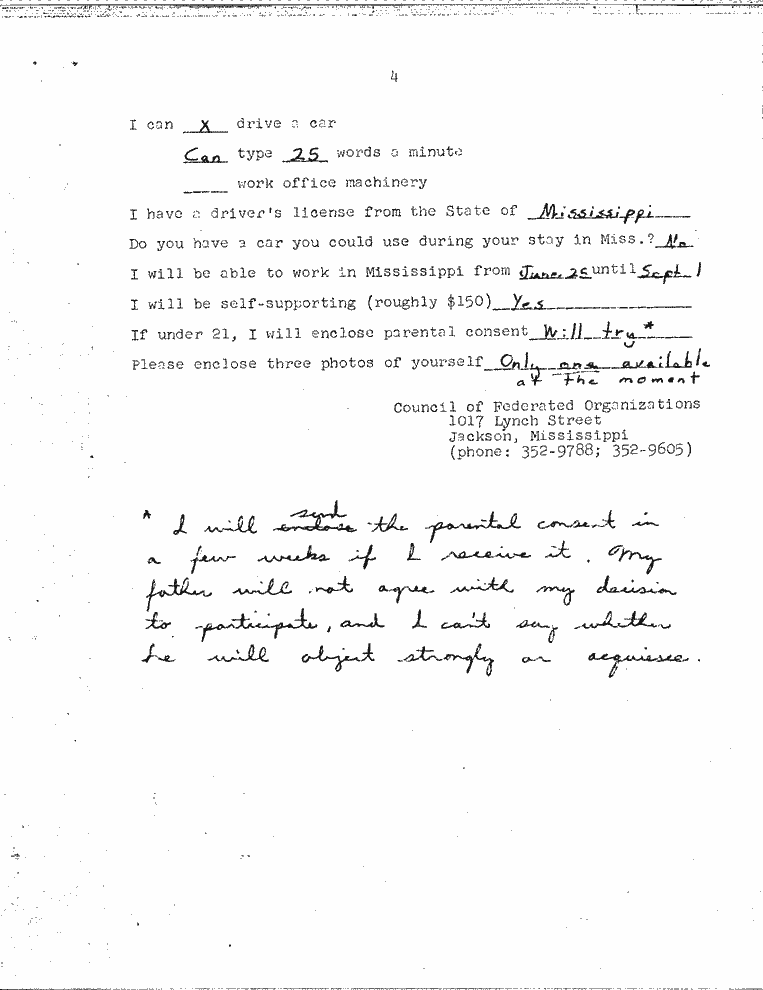 4
I can X drive a car
Can type 25 words a minute
____ work office machinery
I have a driver's license from the State of Mississippi
Do you have a car you could use during your stay in Miss.? No
I will be able to work in Mississippi from June 25 until Sept 1
I will be self-supporting (roughly $150) Yes
If under 21, I will enclose parental consent Will try*
Please enclose three photos of yourself Only one available
at the moment
Council of Federated Organizations
1017 Lynch Street
Jackson, Mississippi
(phone: 352-9788; 352-9605)
send
* I will enclose the parental consent in
a few weeks if I receive it. My
father will not agree with my decision
to participate, and I can't say whether
he will object strongly or acquiesce.